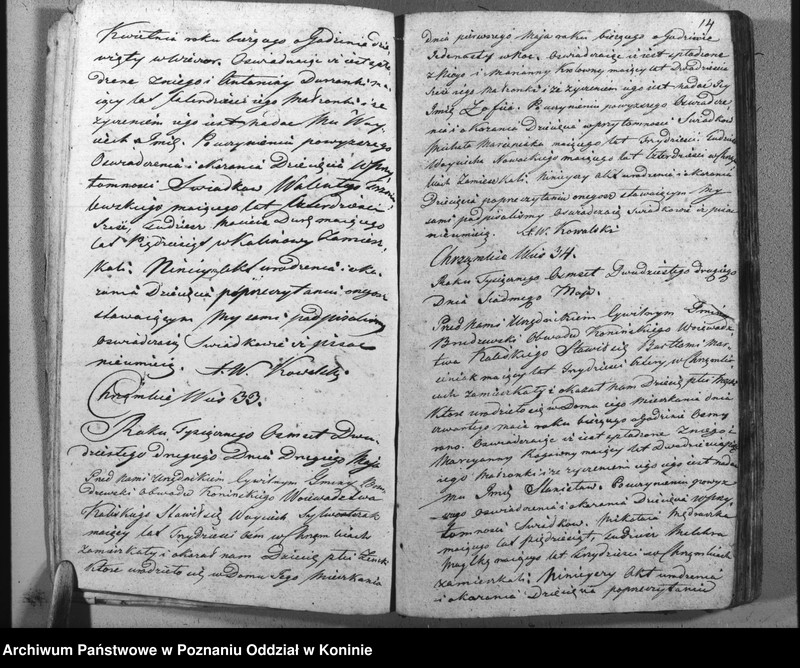 Kwietnia roku bieżącego o Godzinie dzie
wiąty w Wieczor. Oswiadczaiąc iż iest spło
dzone z niego i Antoniny ma
iący lat Czterdzieści iego Małżonki i że
życzeniem iego iest nadac Mu Woy
ciech Imię. Po uczynieniu powyższego
Oswiadczenia i okazania Dziecięcia w Przy
tomności Swiadkow Walentego
lewskiego maiącego lat Czterdzieści
Szesc, tudziesz Macieia maiącego
lat Pięćdziesiąt w Kalinowy Zamiesz
kali. Ninieyszy Akt urodzenia i oka
zania Dziecięcia po przeczytaniu onegosz
stawaiącym My sami podpisalismy
oswiadczaią Swiadkowie iż pisac
nieumieią. A W Kowalski
Chrzęblice Wieś 33.
Roku Tysiącznego Osmset Dwu
dziestego drugiego Dnia Drugiego Maja
Przed Nami Urzędnikiem Cywilnym Gminy Bru
dzewski Obwodu Konińskiego Woiewodztwa
Kaliskiego Stawił się Woyciech
maiący lat Trzydzieści w Chrzęblicach
zamieszkały i okazał nam Dziecię płci Żeński
Ktore urodzieło się w Domu Jego Mieszkania
14
dnia pierwszego Maja roku bieżącego o Godzinie
Jedenasty w Noc. Oswiadczaiąc iż iest spłodzone
z Niego i Maryanny maiący lat Dwadzieścia
Sześć iego Małżonki i że życzeniem iego iest nadać Iey
Imię Zofiia. Po uczynieniu powyższego Oswiadcze
nia i okazania Dziecięcia w przytomności Swiadkow
Michała maiącego lat Trzydzieści tudziesz
Woyciecha Nowackiego maiącego lat Czterdzieści w Chrzęb
licach Zamieszkali. Ninieyszy Akt urodzenia i okazania
Dziecięcia po przeczytaniu onegosz stawaiącym My
sami podpisalismy Oswiadczaią Swiadkowie iż pisac
nieumieią. A W. Kowalski
Chrzęblice Wieś 34.
Roku Tysiącznego Osmset Dwudziestego drugiego
Dnia Siodmego Maja.
Przed Nami Urzędnikiem Cywilnym Gminy
Brudzewski Obwodu Konińskiego Woiewodz
twa Kaliskiego Stawił się Bartłomi Mar
ciniak maiący lat Trzydzieści w Chrzębli
cach zamieszkały i okazał nam Dziecię płci Męski
Ktore urodzieło się w Domu iego Mieszkania dnia
czwartego maia roku bieżącego o godzinie Osmy
rano. Oswiadczaiąc iż iest spłodzone z niego i
Maryanny maiący lat Dwadzieścia
iego Małżonki i że życzeniem iego iest nadac
mu Imię Stanisław. Po uczynieniu powyż
szego oswiadczenia i okazania Dziecięcia w przy
tomności Swiadkow. Mikołaia
maiącego lat pięćdziesiąt, tudziesz Melchra
maiącego lat trzydzieści w Chrzęblicach
zamieszkali. Ninieyszy Akt urodzenia
i okazania Dziecięcia po przeczytaniu
Archiwum Państwowe w Poznaniu Oddział w Koninie